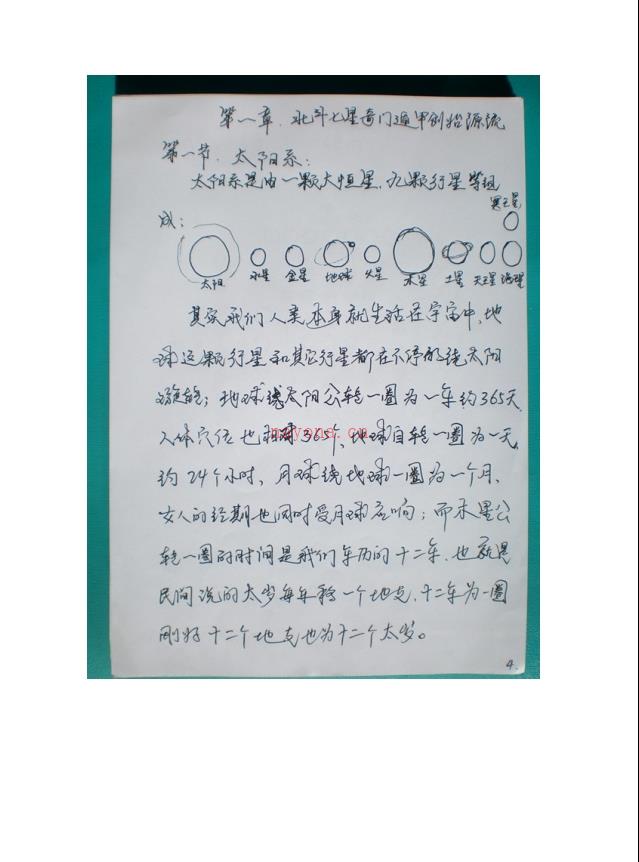 第一章、北斗七星奇门遁甲创始源流
第一节、太阳系：
太阳系是由一颗大恒星、九颗行星等组
成：
冥王星
太阳 水星 金星 地球 火星 木星 土星 天王星 海王星
其实我们人类本身就生活在宇宙中、地
球这颗行星和其它行星都在不停的绕太阳
旋转；地球绕太阳公转一圈为一年约365天、
人体穴位也 365个、地球自转一圈为一天、
nayona.cn
约24个小时、月球绕地球一圈为一个月、
女人的经期也同时受月球影响；而木星公
转一圈的时间是我们年历的十二年、也就是
民间说的太岁每年移一个地支、十二年为一圈
刚好十二个地支也为十二个太岁。
4